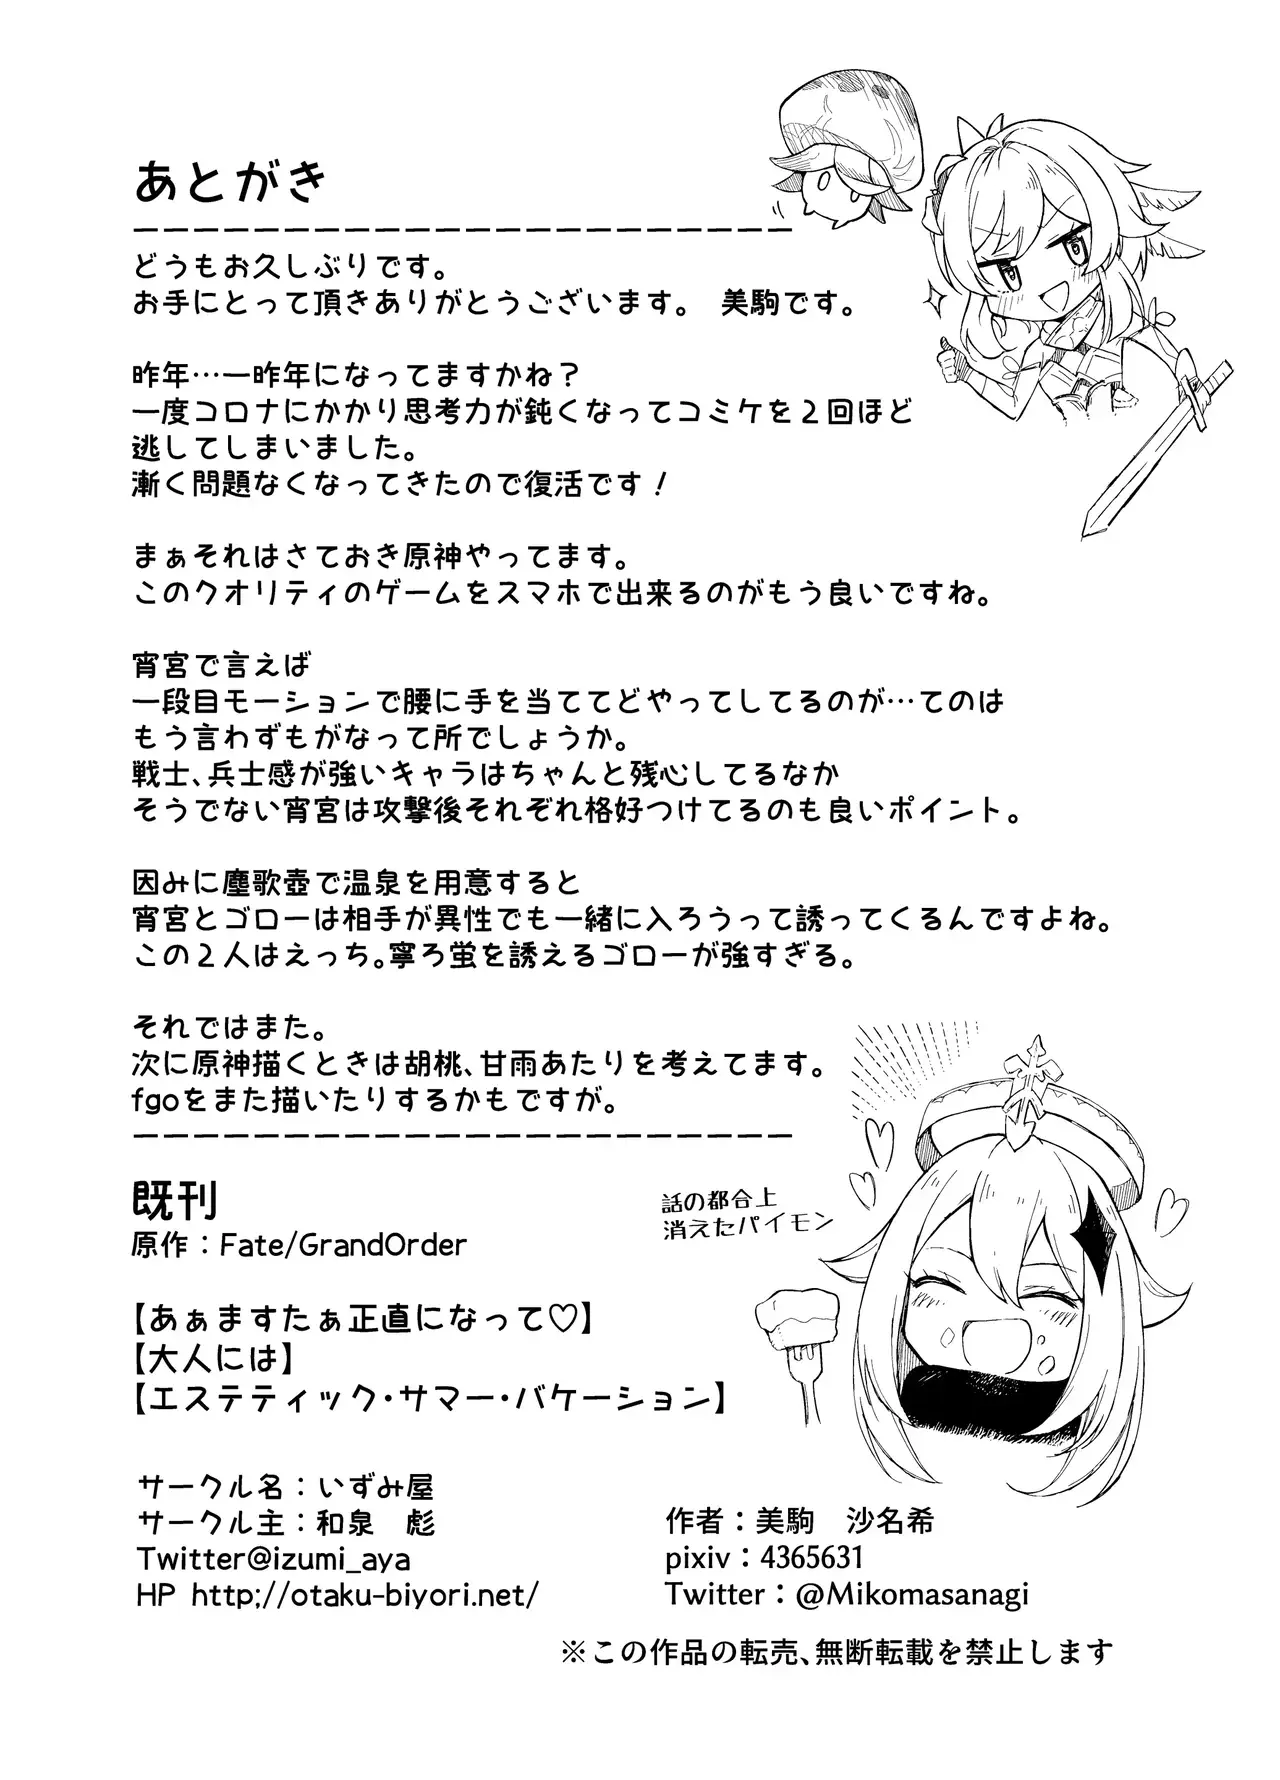 あとがき
どうもお久しぶりです。
お手にとって頂きありがとうございます。　美駒です。
昨年…一昨年になってますかね？
一度コロナにかかり思考力が鈍くなってコミケを２回ほど
逃してしまいました。
漸く問題なくなってきたので復活です！
まぁそれはさておき原神やってます。
このクオリティのゲームをスマホで出来るのがもう良いですね。
宵宮で言えば
一段目モーションで腰に手を当ててどやってしてるのが…てのは
もう言わずもがなって所でしょうか。
戦士、兵士感が強いキャラはちゃんと残心してるなか
そうでない宵宮は攻撃後それぞれ格好つけてるのも良いポイント。
因みに塵歌壺で温泉を用意すると
宵宮とゴローは相手が異性でも一緒に入ろうって誘ってくるんですよね。
この２人はえっち。寧ろ蛍を誘えるゴローが強すぎる。
それではまた。
次に原神描くときは胡桃、甘雨あたりを考えてます。
fgoをまた描いたりするかもですが。
既刊
原作：Fate/GrandOrder
話の都合上
消えたパイモン
【あぁますたぁ正直になって♡】
【大人には】
【エステティック・サマー・バケーション】
サークル名：いずみ屋
サークル主：和泉　彪
Twitter@izumi_aya
HP http;//otaku-biyori.net/
作者：美駒　沙名希
pixiv：4365631
Twitter：@Mikomasanagi
※この作品の転売、無断転載を禁止します